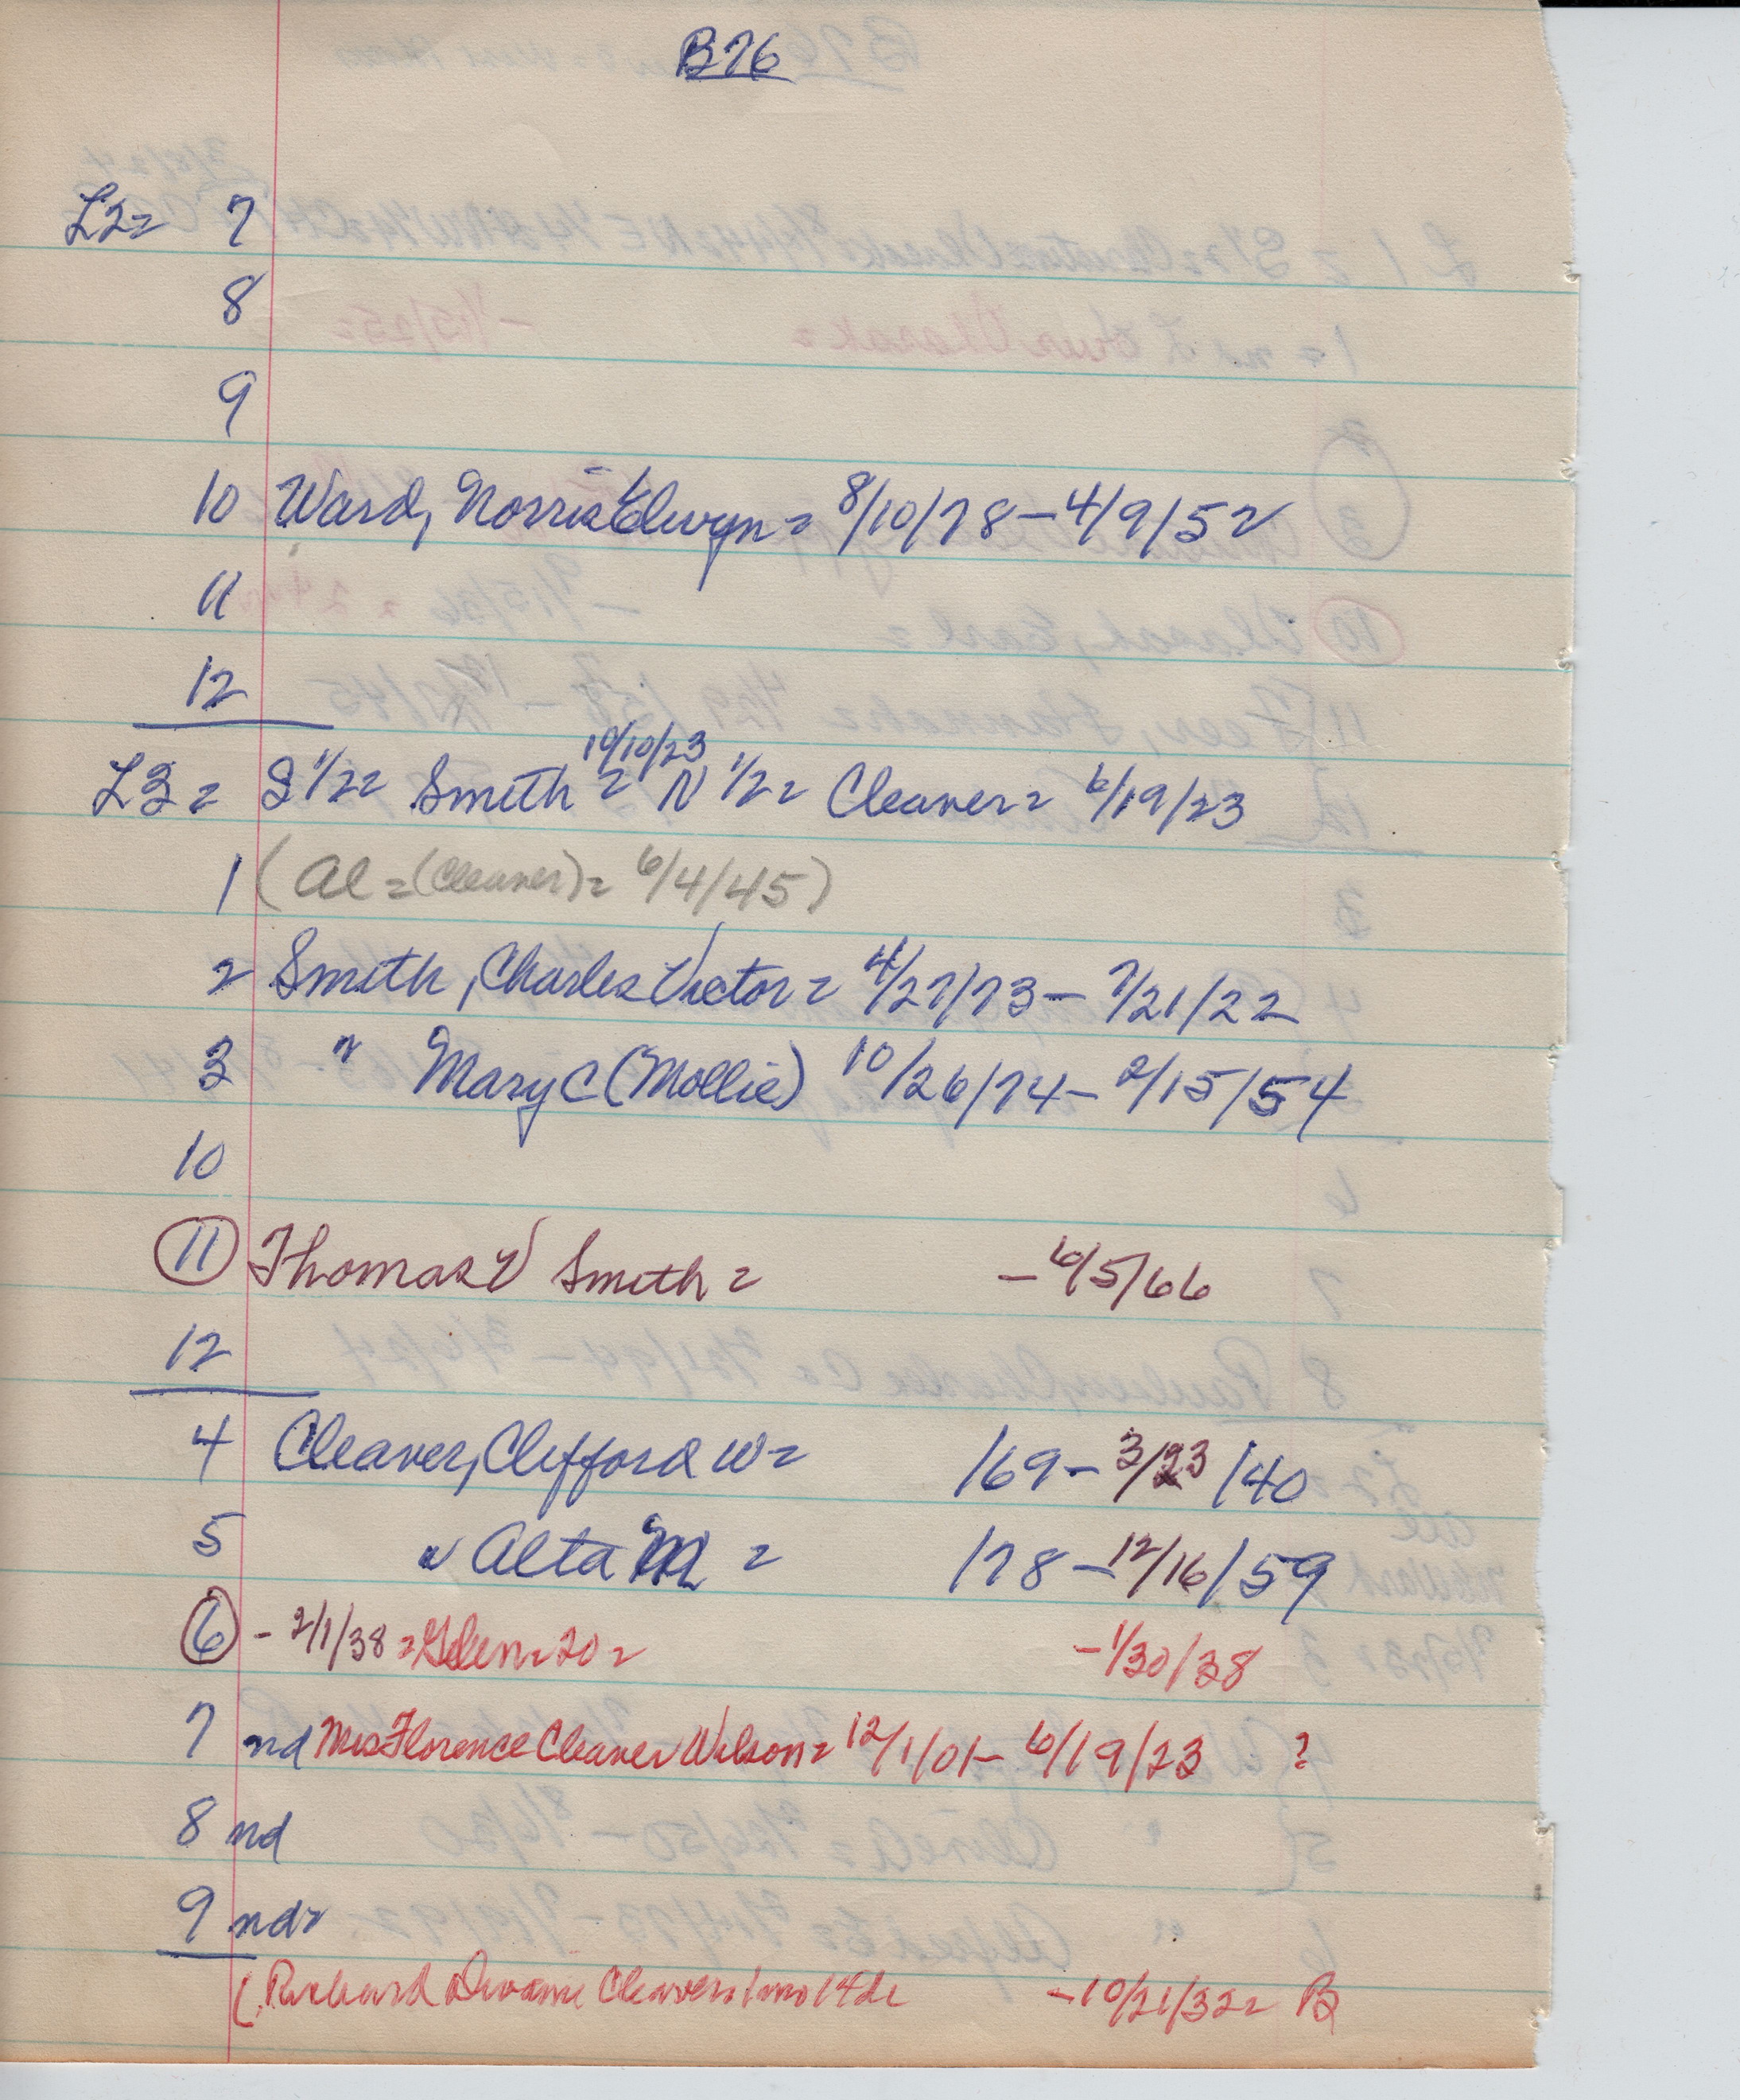 B76
L2= 7
8
9
10 Ward, Norris Elwyn = 8/10/78 - 4/9/52
11
12
10/10/23
L3 = S 1/2 = Smith = N 1/2 = Cleaver = 6/19/23
1 (Al = (Cleaver) = 6/4/45)
2 Smith, Charles Victor = 4/27/73 - 7/21/22
3 " Mary C (Mollie) 10/26/74 - 2/15/54
10
11 Thomas V Smith = - 6/5/66
12
4 Cleaver, Clifford W = /69 - 3/23/40
5 " Alta M = /78 - 12/16/59
6 - 2/1/38 = Glen = 20 = - 1/30/38
7 nd Mrs Florence Cleaver Wilson = 12/1/01 - 6/19/23 ?
8 nd
9 nd=
(Richard Cleaver = 1 mo 14 ds - 10/21/32 = B